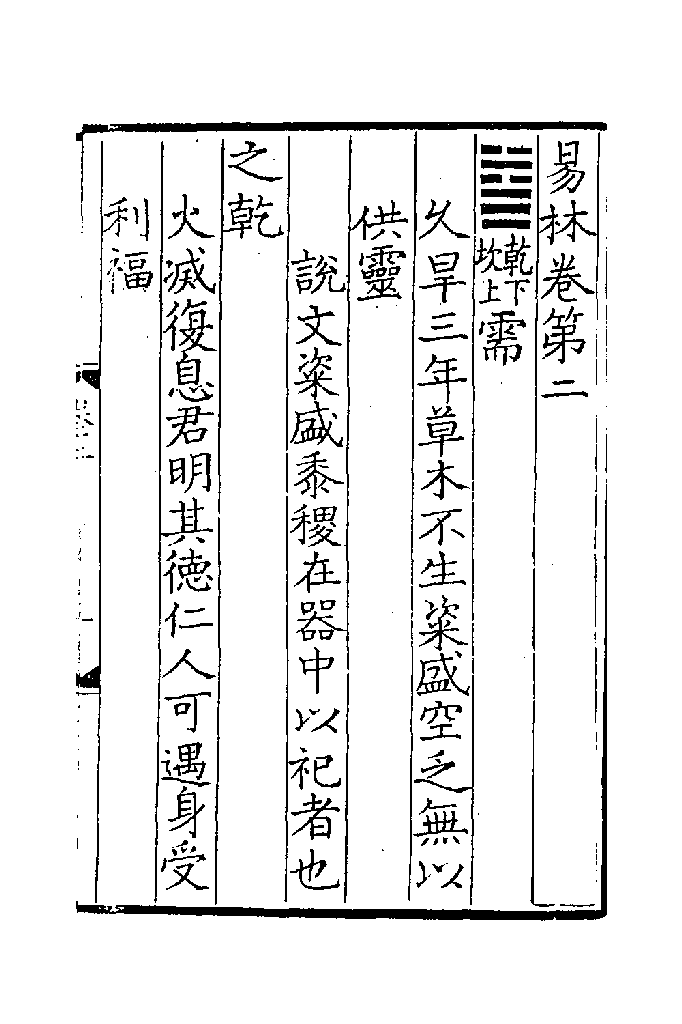 易林卷第二
䷄乾下坎上需
久旱三年草木不生粢盛空乏無以
供靈
說文粢盛黍稷在器中以祀者也
之乾
火滅復息君明其德仁人可遇身受
利福